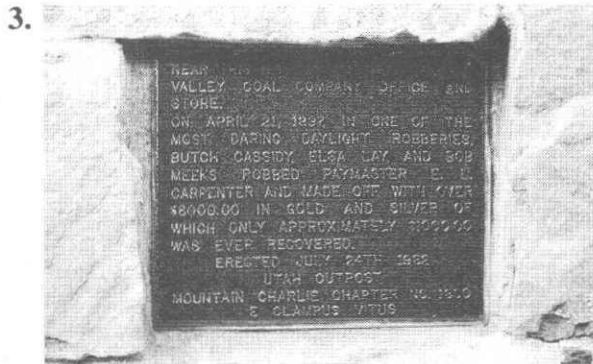 3.
NEAR
VALLEY COAL COMPANY OFFICE AND
STORE.
ON APRIL 21, 1897 IN ONE OF THE
MOST DARING DAYLIGHT ROBBERIES,
BUTCH CASSIDY, ELSA LAY, AND BOB
MEEKS ROBBED PAYMASTER E. L.
CARPENTER AND MADE OFF WITH OVER
$8000.00 IN GOLD AND SILVER OF
WHICH ONLY APPROXIMATELY $1000.00
WAS EVER RECOVERED.
ERECTED JULY 24TH 1988
UTAH OUTPOST
MOUNTAIN CHARLIE CHAPTER NO. 1850
E CLAMPUS VITUS